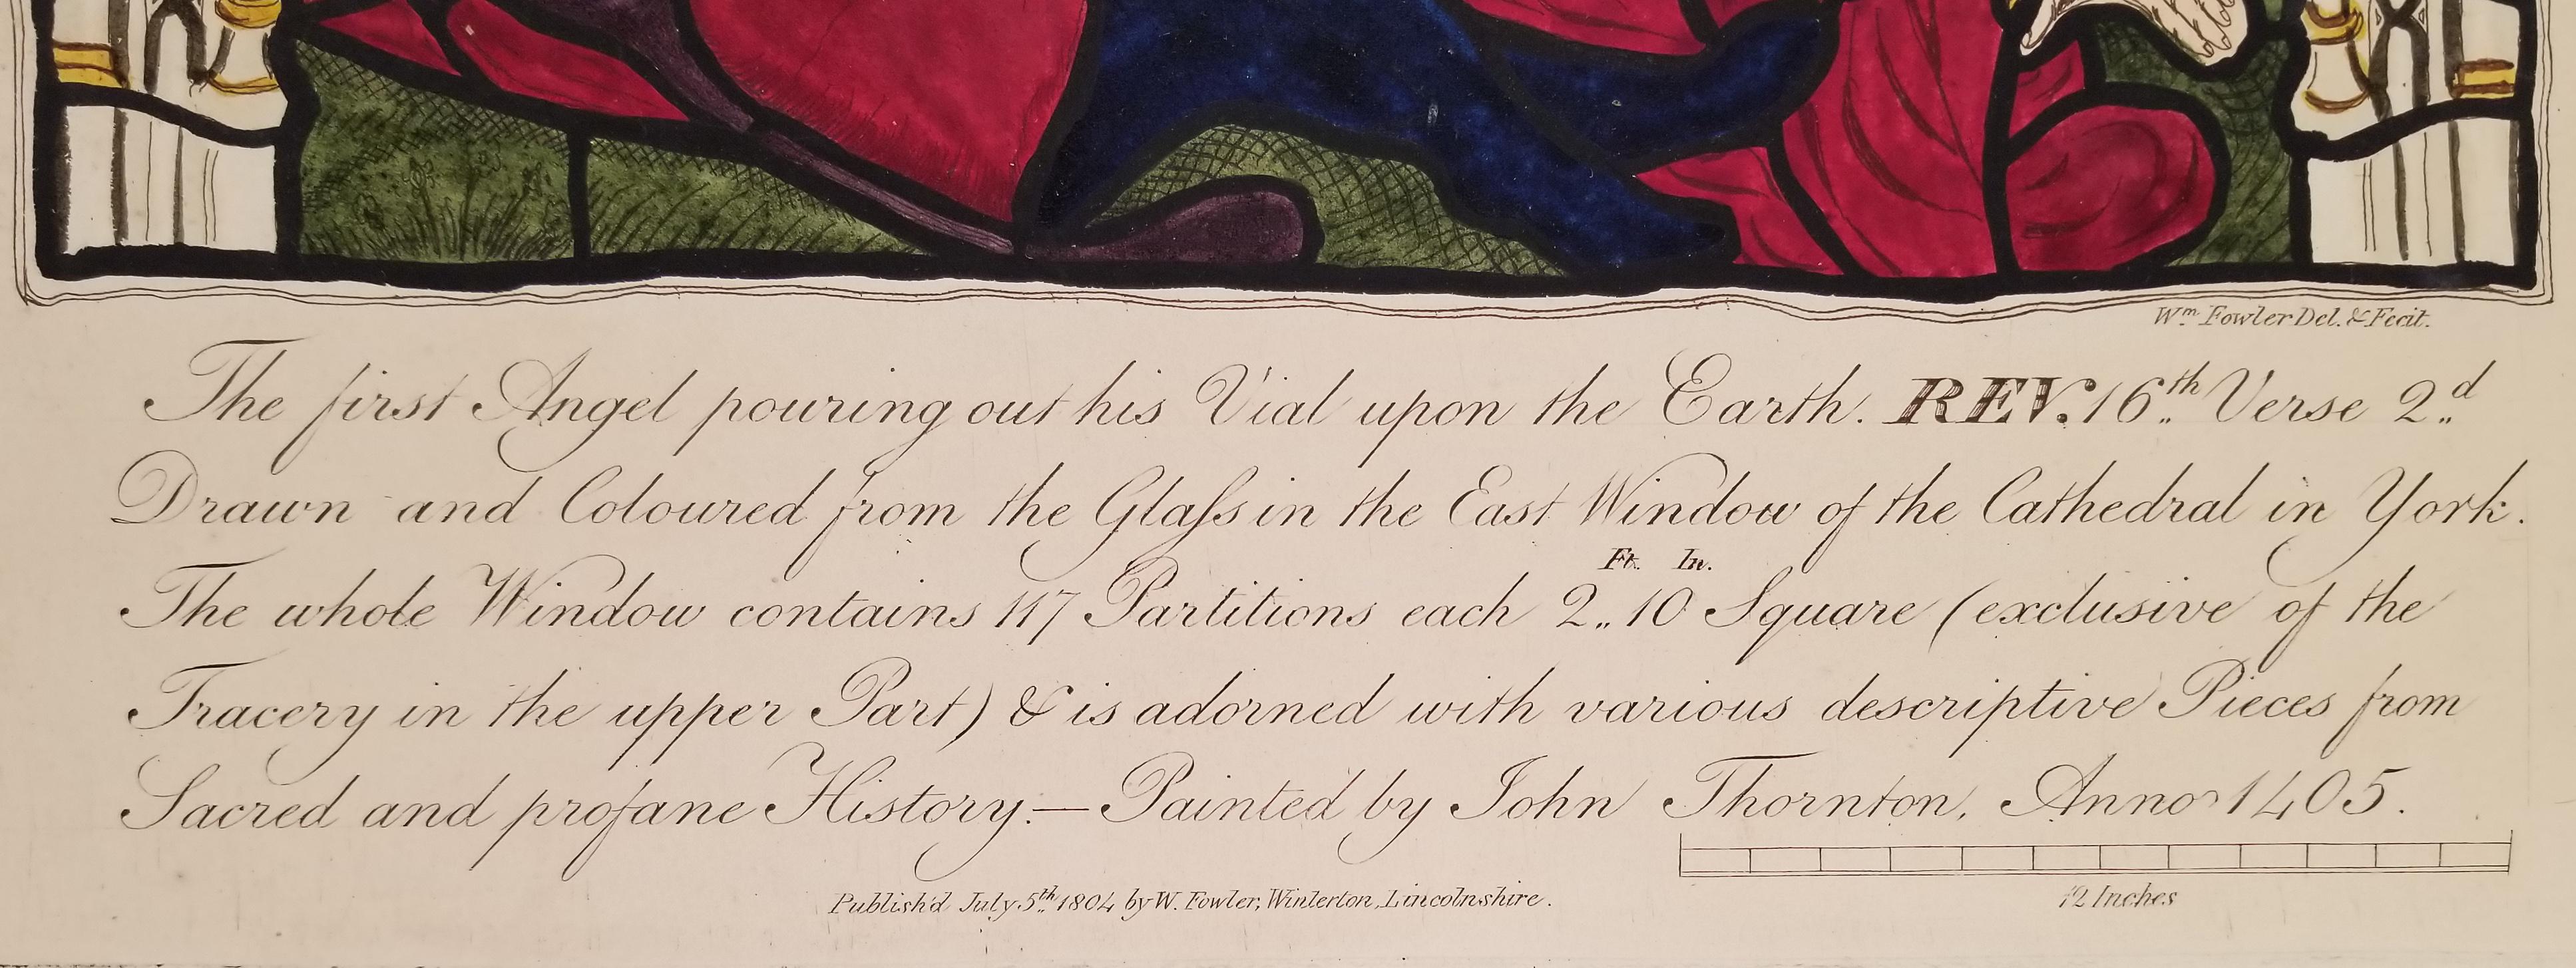 Wm. Fowler Del. & Fecit.
The first Angel pouring out his Vial upon the Earth. REV. 16th Verse 2d
Drawn and Coloured from the Glaſs in the East Window of the Cathedral in York.
Ft. In.
The whole Window contains 117 Partitions each 2.. 10 Square (exclusive of the
Tracery in the upper Part) & is adorned with various descriptive Pieces from
Sacred and profane History.— Painted by John Thornton, Anno 1405.
12 Inches
Publish'd July 5th 1804 by W. Fowler, Winterton, Lincolnshire.